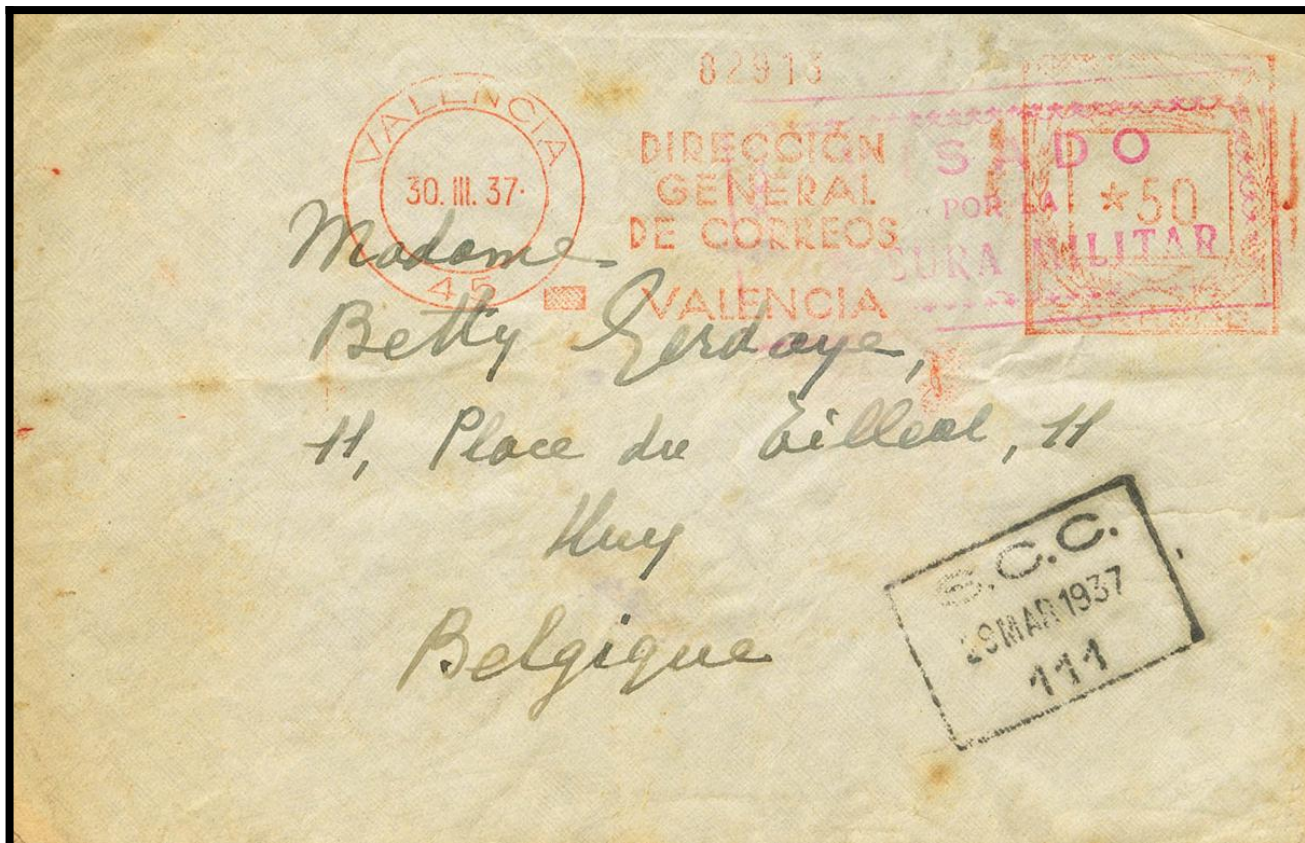 82913
VALENCIA
30. III. 37.
45
DIRECCIÓN
GENERAL
DE CORREOS
VALENCIA
SADO
POR LA
SURA MILITAR
*50
Madame
Betty Gerdaye,
11, Place du Tilleul, 11
Huy
Belgique
S.C.C.
29 MAR 1937
111